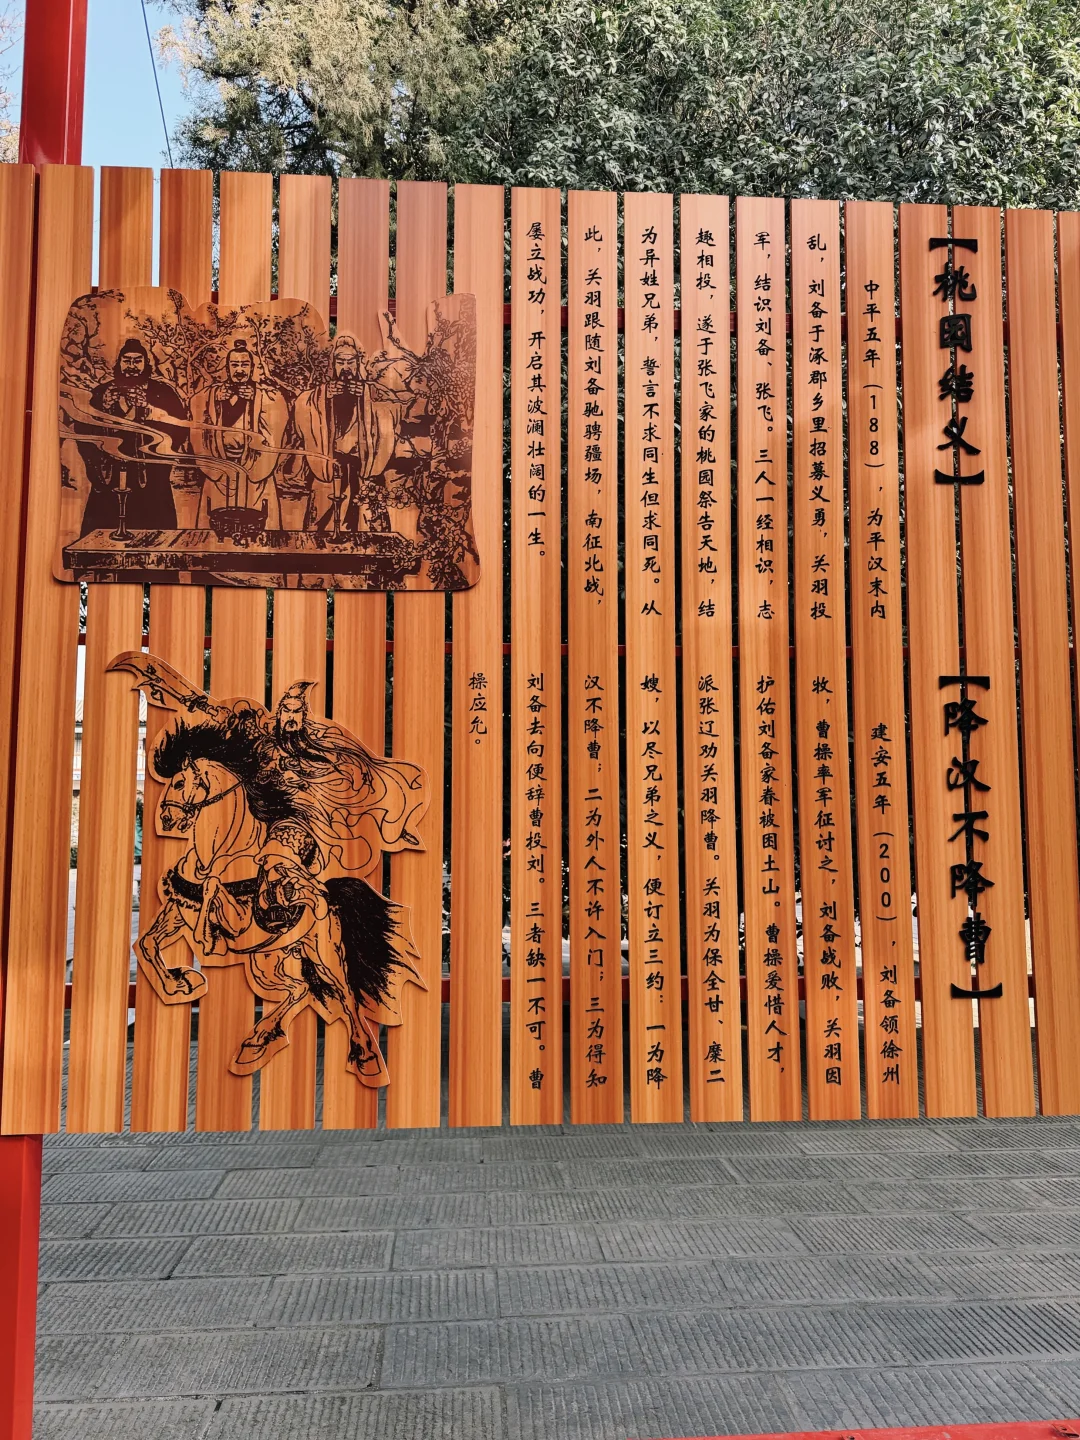 【桃园结义】
中平五年（188），为平汉末内
乱，刘备于涿郡乡里招募义勇，关羽投
军，结识刘备、张飞。三人一经相识，志
趣相投，遂于张飞家的桃园祭告天地，结
为异姓兄弟，誓言不求同生但求同死。从
此，关羽跟随刘备驰骋疆场，南征北战，
屡立战功，开启其波澜壮阔的一生。
【降汉不降曹】
建安五年（200），刘备领徐州
牧，曹操率军征讨之，刘备战败，关羽因
护佑刘备家眷被困土山。曹操爱惜人才，
派张辽劝关羽降曹。关羽为保全甘、糜二
嫂，以尽兄弟之义，便订立三约：一为降
汉不降曹；二为外人不许入门；三为得知
刘备去向便辞曹投刘。三者缺一不可。曹
操应允。